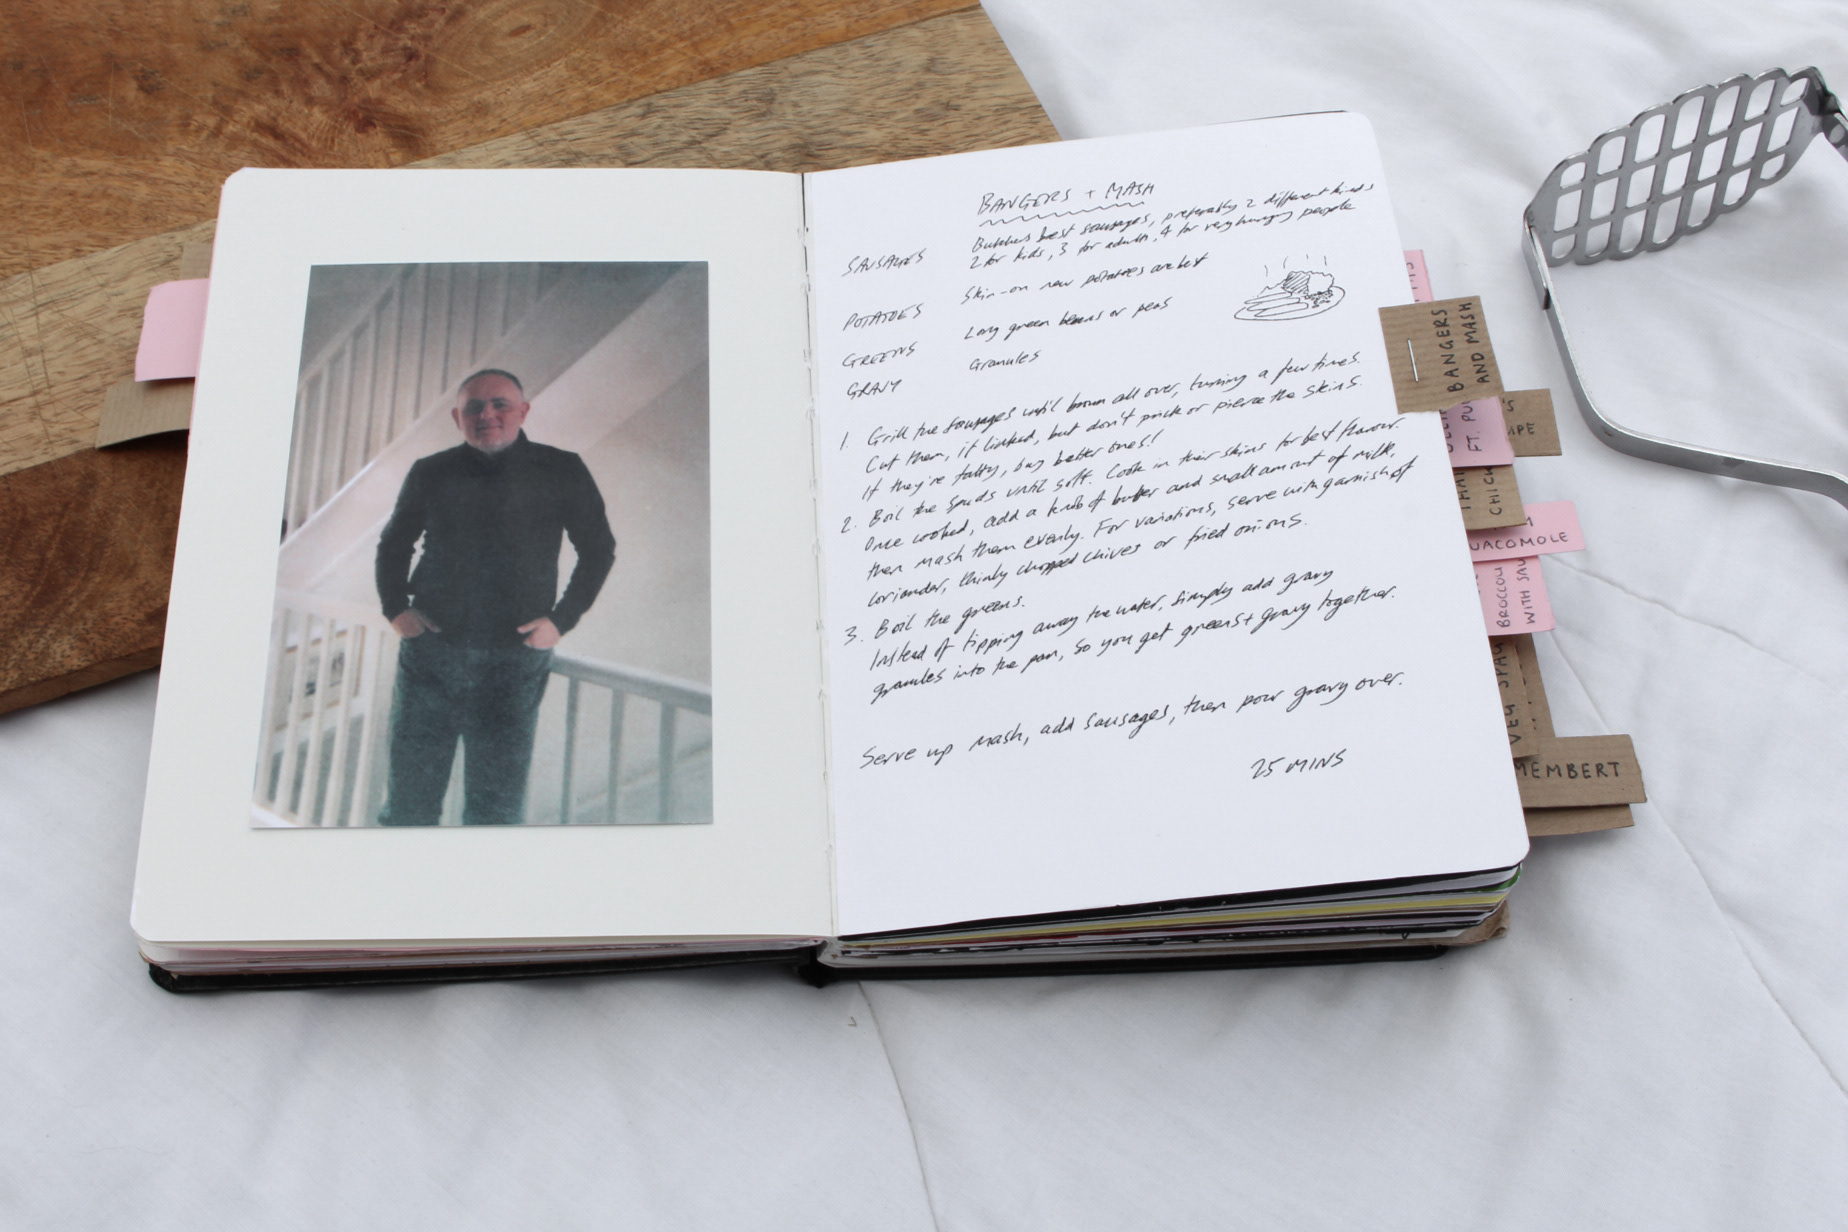 BANGERS + MASH
SAUSAGES
Butchers best sausages, preferably 2 different kinds
2 for kids, 3 for adults, 4 for very hungry people
POTATOES
Skin-on new potatoes are best
GREENS
Long green beans or peas
GRAVY
Granules
1. Grill the sausages until brown all over, turning a few times.
Cut them, if linked, but don't prick or pierce the skins.
If they're fatty, buy better ones!
2. Boil the spuds until soft. Cook in their skins for best flavour.
Once cooked, add a knob of butter and small amount of milk,
then mash them evenly. For variations, serve with garnish of
coriander, thinly chopped chives or fried onions.
3. Boil the greens.
Instead of tipping away the water, simply add gravy
granules into the pan, so you get greens + gravy together.
Serve up mash, add sausages, then pour gravy over.
25 MINS
BANGERS
AND MASH
FT. PU
CHIC
UACOMOLE
BROCCOLI
WITH SAU
VEG SPAG
MEMBERT